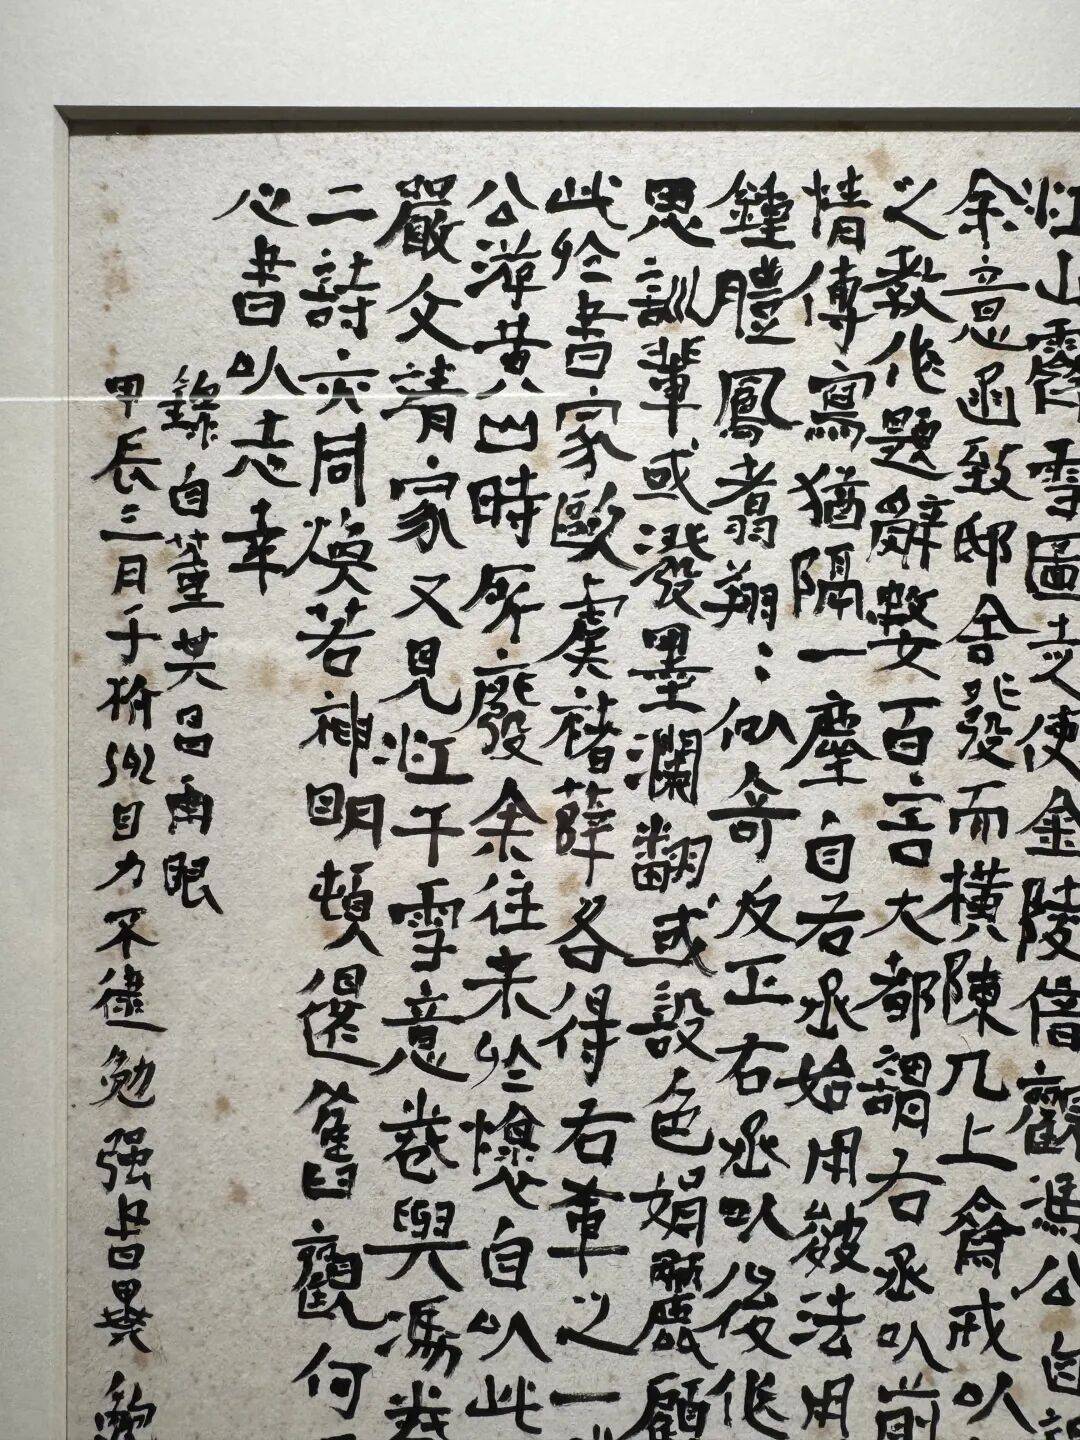 江山霽雪圖走使金陵借觀馮公自
余意亟致邸舍發而橫陳几上齋戒以
之教作題辭數百言大都謂右丞以前
情傳寫猶隔一塵自右丞始用皴法用
鍾體鳳翥翔::似奇反正右丞以後作
思訓輩或潑墨瀾翻或設色娟麗顧
此於書家歐虞褚薛各得右軍之一
公游黃山時所廢余往來於懷自以此
嚴文靖家又見江干雪意卷與馮卷
二詩亦同煥若神明頓還舊觀何
心書以志幸
錄自董其昌画眼
甲辰三月于 目力不逮勉强書畢